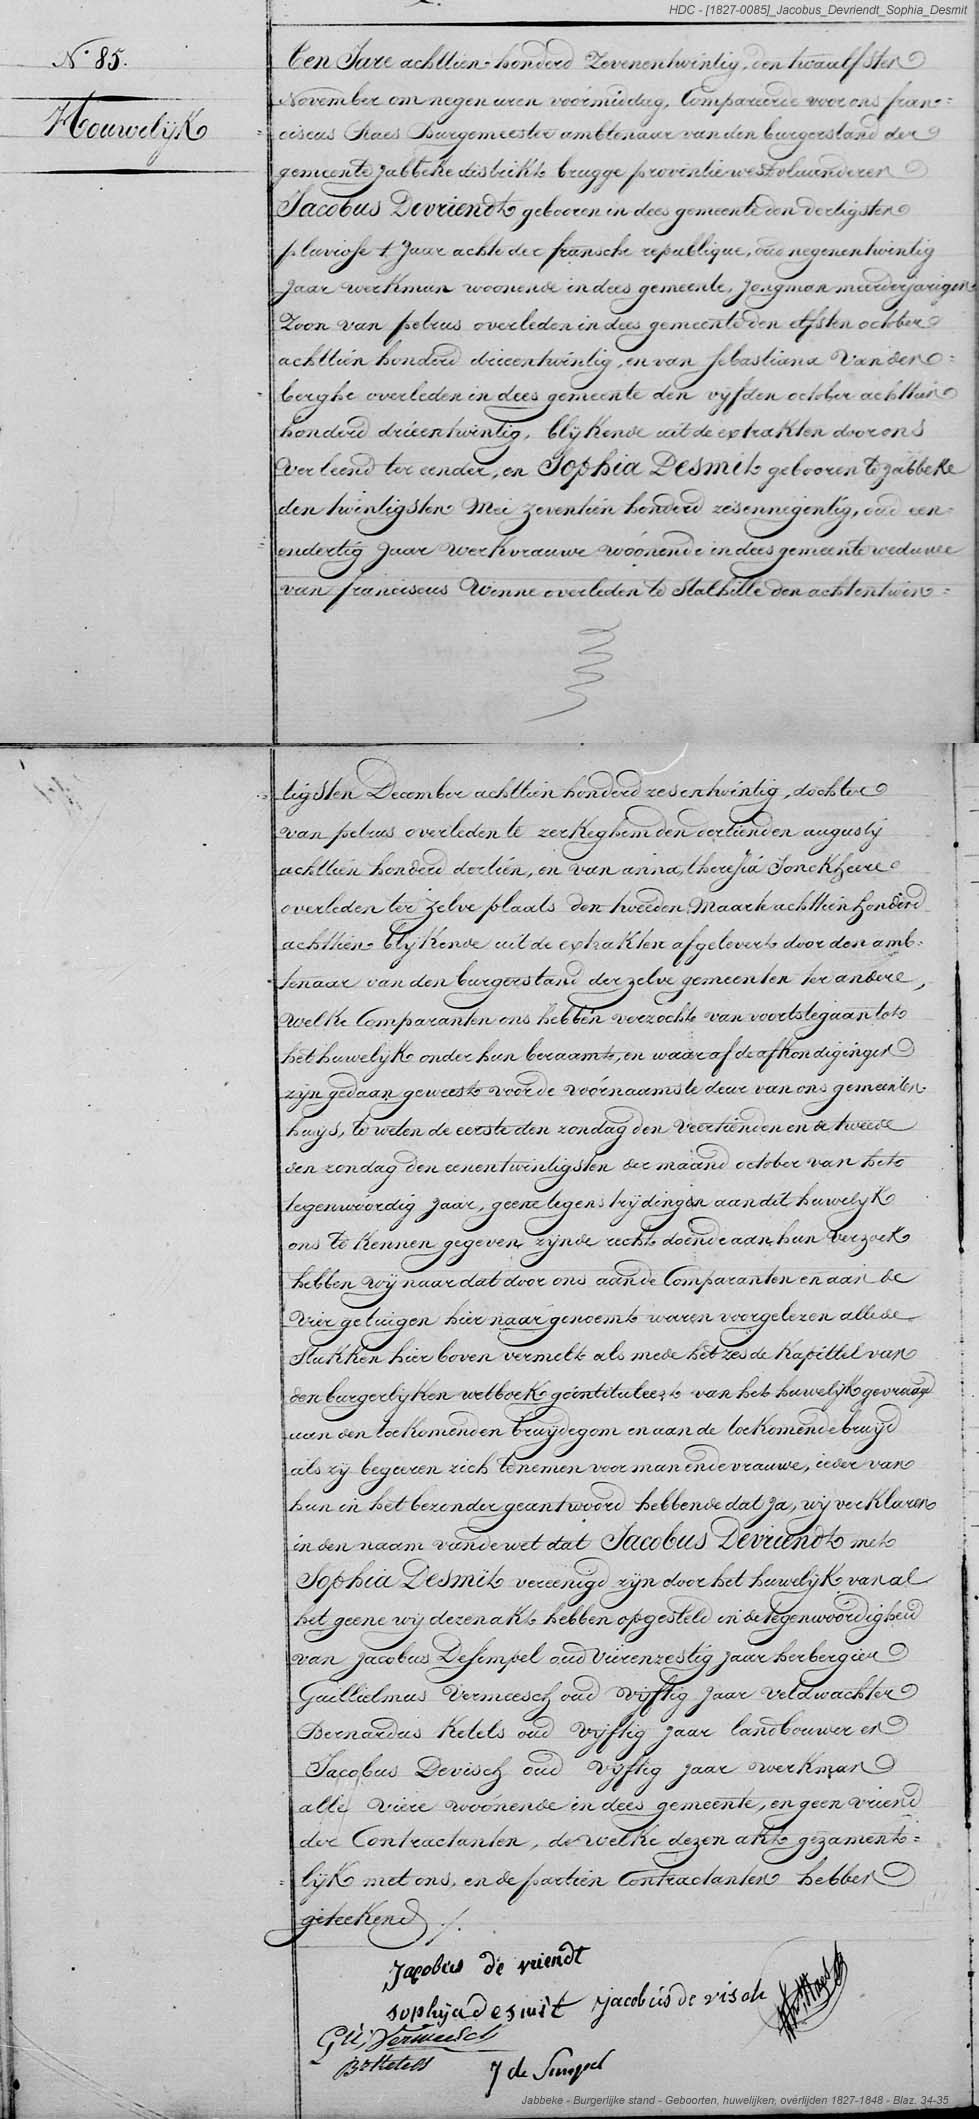 HDC - [1827-0085]_Jacobus_Devriendt_Sophia_Desmit
N.° 85.
Houwelijk
Ten Jare achttien-honderd Zevenentwintig, den twaalfsten
November om negen uren voormiddag, Compareerde voor ons fran=
ciscus Raes Burgemeester ambtenaar van den burgerstand der
gemeente Jabbeke distrikt brugge provintie westvlaanderen
Jacobus Devriendt gebooren in dees gemeente den dertigsten
pluviose t Jaar acht der fransche republique, oud negenentwintig
Jaar werkman woonende in dees gemeente, Jongman meerderjarigen
Zoon van petrus overleden in dees gemeente den elfsten october
achttien honderd drieentwintig, en van sebastiana Vanden=
berghe overleden in dees gemeente den vijfden october achttien
honderd drieentwintig, blijkende uit de extrakten door ons
verleend ter eender, en Sophia Desmit gebooren te Jabbeke
den twintigsten Mei zeventien honderd zesennegentig, oud een=
endertig Jaar werkvrauwe woonende in dees gemeente weduwe
van franciscus Winne overleden te Stalhille den achtentwin=
tigsten December achttien honderd zesentwintig, dochter
van petrus overleden te zerkeghem den dertienden augusty
achttien honderd dertien, en van anna theresia Jonckheere
overleden ter zelve plaats den tweeden Maarte achttien honderd
achttien blijkende uit de extrakten afgelevert door den amb=
tenaar van den burgerstand der zelve gemeenten ter andere,
welke Comparanten ons hebben verzocht van voortstegaan tot
het huwelijk onder hun beraamt, en waar af de afkondigingen
zijn gedaan geweest voor de voornaamste deur van ons gemeenten
huijs, te weten de eerste den zondag den Veertienden en de tweede
den zondag den eenentwintigsten der maand october van het
tegenwoordig Jaar, geene tegenstrijdingen aan dit huwelijk
ons te kennen gegeven zijnde recht doende aan hun verzoek
hebben wij naar dat door ons aan de Comparanten en aan de
vier getuigen hier naar genoemt waren voorgelezen alle de
stukken hier boven vermelt als mede het zesde Kapittel van
den burgerlijken wetboek geintituleert van het huwelijk gevraagd
aan den toekomenden bruijdegom en aan de toekomende bruijd
als zij begeeren zich te nemen voor man ende vrauwe, ieder van
hun in het bezonder geantwoord hebbende dat Ja, wij verklaren
in den naam van de wet dat Jacobus Devriendt met
Sophia Desmit vereenigd zijn door het huwelijk van al
het geene wij dezen akt hebben opgesteld in de tegenwoordigheid
van Jacobus Desimpel oud vierenzestig Jaar herbergier
Guillielmus Vermeesch oud vijftig Jaar veldwachter
Bernardus Ketels oud vijftig Jaar landbouwer en
Jacobus Devisch oud vijftig Jaar werkman
alle viere woonende in dees gemeente, en geen vriend
der Contractanten, de welke dezen akt gezament=
lijk met ons, en de partien Contractanten hebben
geteekend ./.
Jacobus de vriendt
sophija desmit Jacobus de visch
Gu: Vermeesch
Bs Ketels
J de Simpel
Jabbeke - Burgerlijke stand - Geboorten, huwelijken, overlijden 1827-1848 - Blaz. 34-35